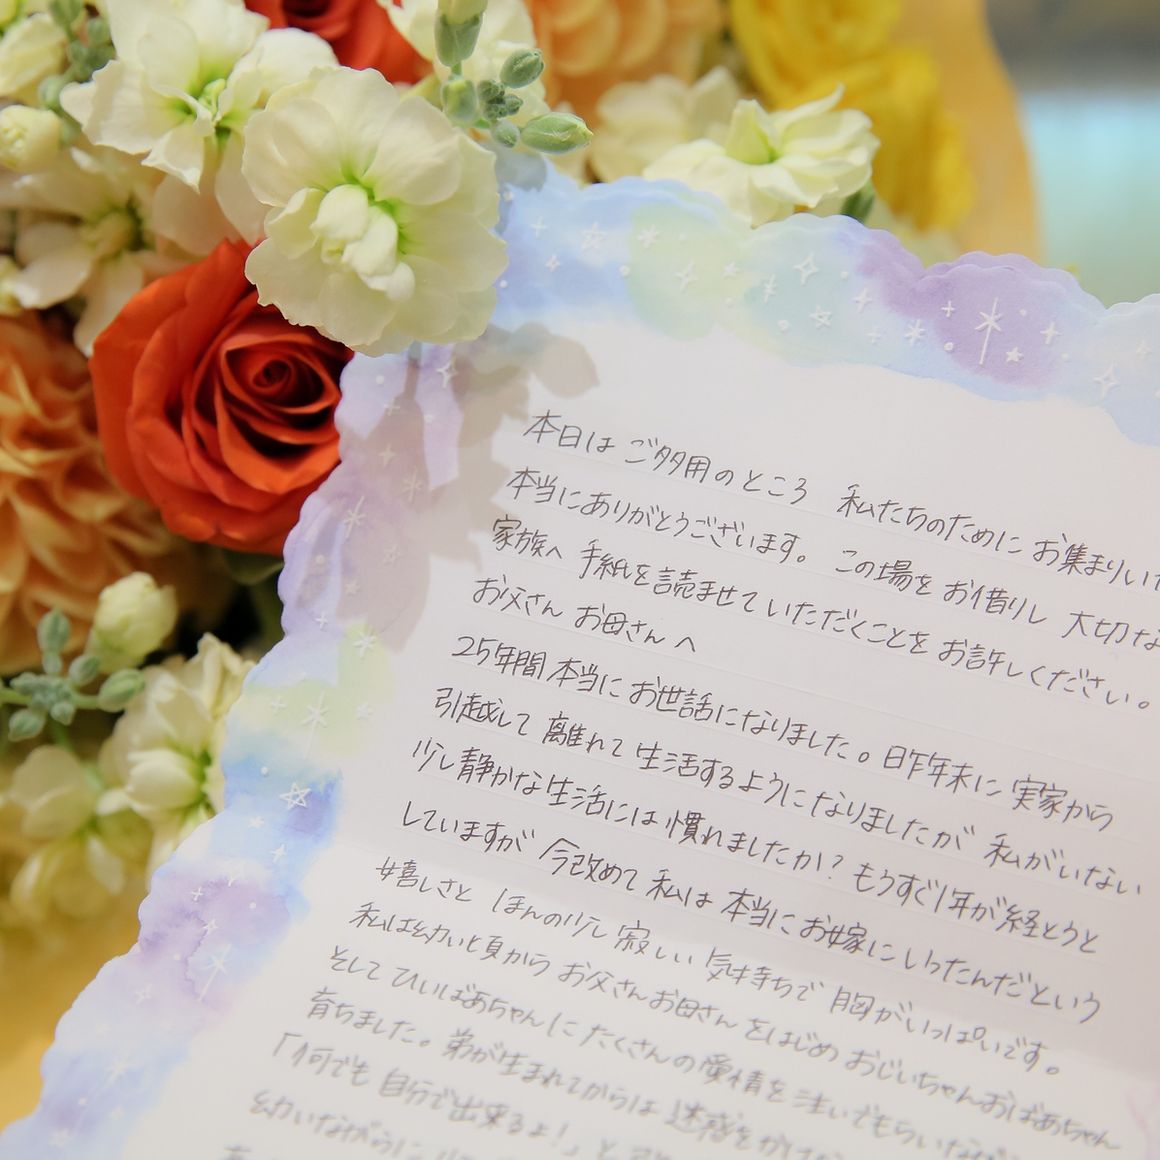 本日は ご多用のところ 私たちのために お集まりいた
本当にありがとうございます。 この場を お借りし 大切な
家族へ 手紙を読ませていただくことを お許しください。
お父さん お母さんへ
25年間 本当に お世話になりました。昨年末に 実家から
引越して 離れて 生活するようになりましたが 私がいない
少し静かな生活には 慣れましたか？もうすぐ1年が経とうと
していますが 今改めて 私は 本当に お嫁に いったんだという
嬉しさと ほんの少し 寂しい 気持ちで 胸がいっぱいです。
私は幼い頃から お父さんお母さんをはじめ おじいちゃんおばあちゃん
そして ひいばあちゃんに たくさんの愛情を注いでもらいながら
育ちました。弟が生まれてからは 迷惑をかけ
「何でも 自分で出来るよ！」と
幼いながらに